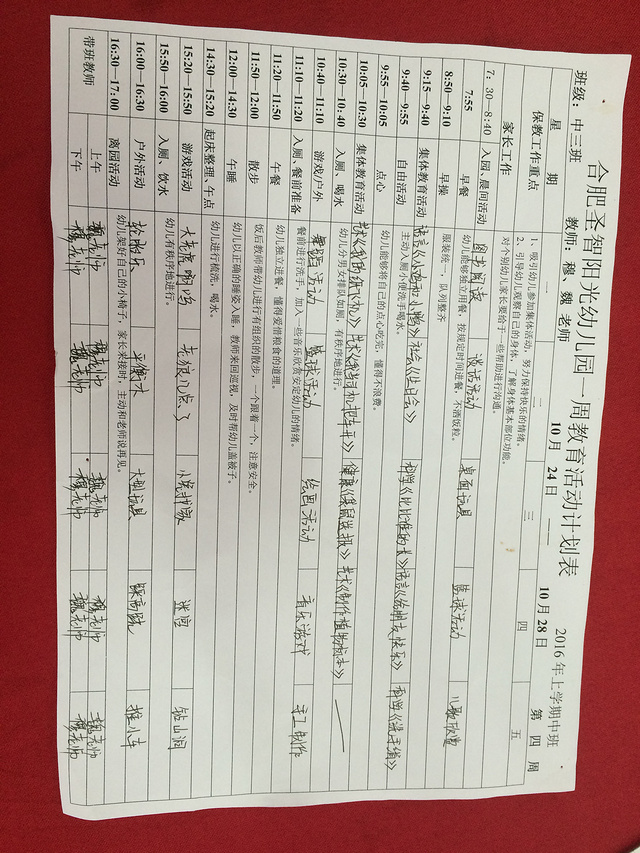 合肥圣智阳光幼儿园一周教育活动计划表
2016年上学期中班
班级：中三班 教师：穆、魏 老师 10月 24日 —— 10月28日 第 四 周
星 期 一 二 三 四 五
保教工作重点 1、吸引幼儿参加集体活动，努力保持快乐的情绪。
2、引导幼儿观察自己的身体，了解身体基本部位功能。
家长工作 对个别幼儿家长要给于一些帮助进行沟通。
7：30—8:40 入园、晨间活动 图书阅读 谈话活动 桌面玩具 篮球活动 儿歌欣赏
7:55 早餐 幼儿能够独立用餐，按规定时间进餐，不洒饭粒。
8:50—9:10 早操 服装统一，队列整齐
9:15—9:40 集体教育活动 语言《小鸡和小鸭》 社会《生日会》 科学《比比谁的大》 语言《给朋友快乐》 科学
9:40—9:55 自由活动 主动入厕小便洗手喝水。
9:55—10:05 点心 幼儿能够将自己的点心吃完，懂得不浪费。
10:05—10:30 集体教育活动 健康 艺术《制作植物标本》
10:30—10:40 入厕、喝水 幼儿分男女排队如厕，有秩序地进行。
10:40—11:10 游戏/户外 舞蹈活动 篮球活动 绘画活动 音乐游戏 手工制作
11:10—11:20 入厕、餐前准备 餐前进行洗手，加入一些音乐欣赏安定幼儿的情绪。
11:20—11:50 午餐 幼儿独立进餐，懂得爱惜粮食的道理。
11:50—12:00 散步 饭后教师带幼儿进行有组织的散步，一个跟着一个，注意安全。
12:00—14:30 午睡 幼儿以正确的睡姿入睡，教师来回巡视，及时帮幼儿盖被子。
14:30—15:20 起床整理、午点 幼儿进行梳洗、喝水。
15:20—15:50 游戏活动 老狼几点了 小兔找家 钻山洞
15:50—16:00 入厕、饮水 幼儿有秩序地进行。
16:00—16:30 户外活动 平衡木 大型玩具 踩高跷 推小车
16:30—17:00 离园活动 幼儿架好自己的小椅子，家长来接时，主动和老师说再见。
带班教师 上午 魏老师 魏老师 魏老师 魏老师 魏老师
下午 穆老师 穆老师 穆老师 穆老师 穆老师